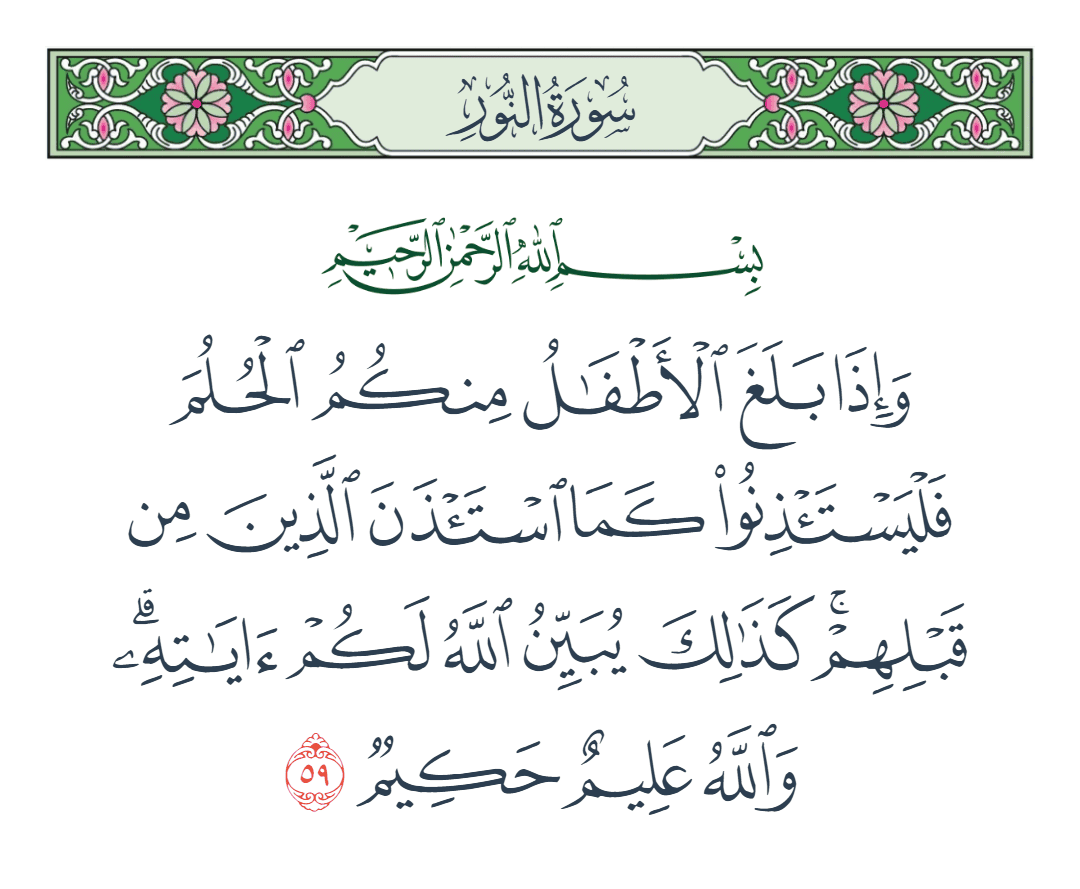 سُورَةُ النُّورِ
بِسْمِ ٱللَّهِ ٱلرَّحْمَٰنِ ٱلرَّحِيمِ
وَإِذَا بَلَغَ ٱلْأَطْفَٰلُ مِنكُمُ ٱلْحُلُمَ
فَلْيَسْتَـْٔذِنُوا۟ كَمَا ٱسْتَـْٔذَنَ ٱلَّذِينَ مِن
قَبْلِهِمْ ۚ كَذَٰلِكَ يُبَيِّنُ ٱللَّهُ لَكُمْ ءَايَٰتِهِۦ ۗ
وَٱللَّهُ عَلِيمٌ حَكِيمٌ ٥٩